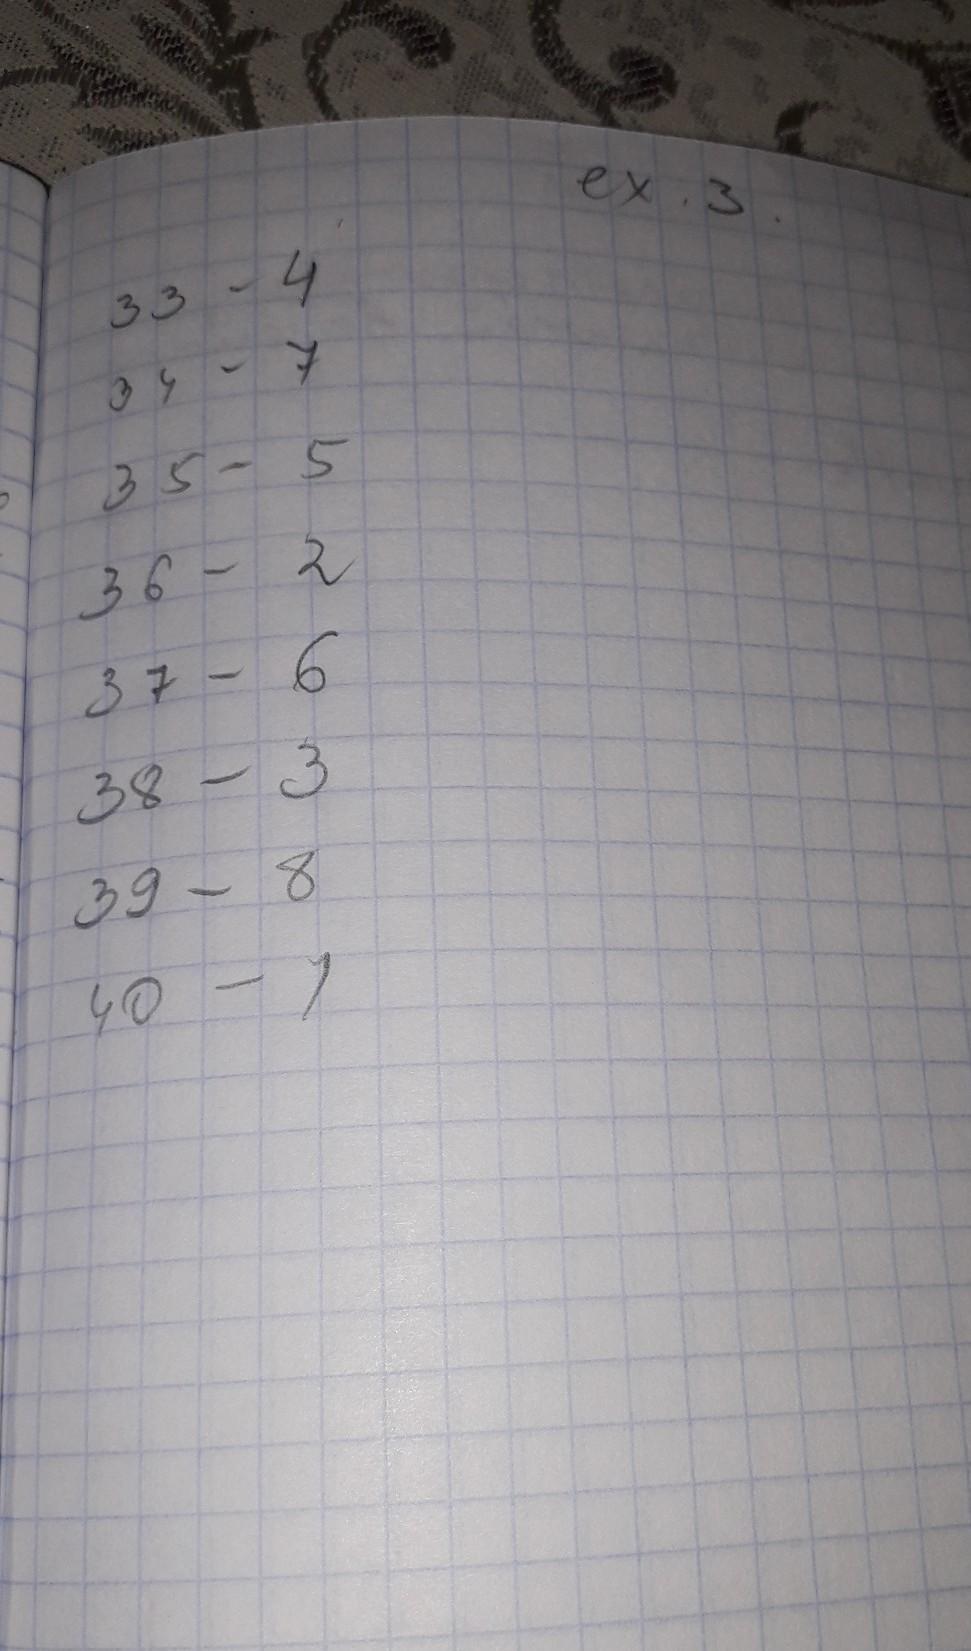 ex. 3.
33 - 4
34 - 7
35 - 5
36 - 2
37 - 6
38 - 3
39 - 8
40 - 1